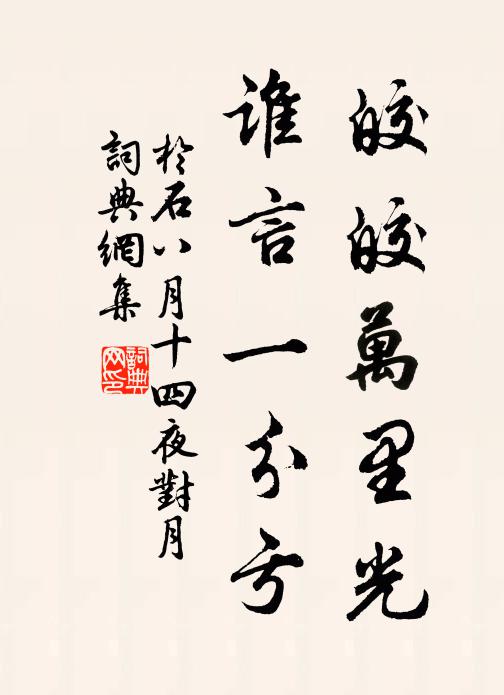 皎皎萬里光
誰言一分亏
於石八月十四夜對月
詞典網集
詞典网印